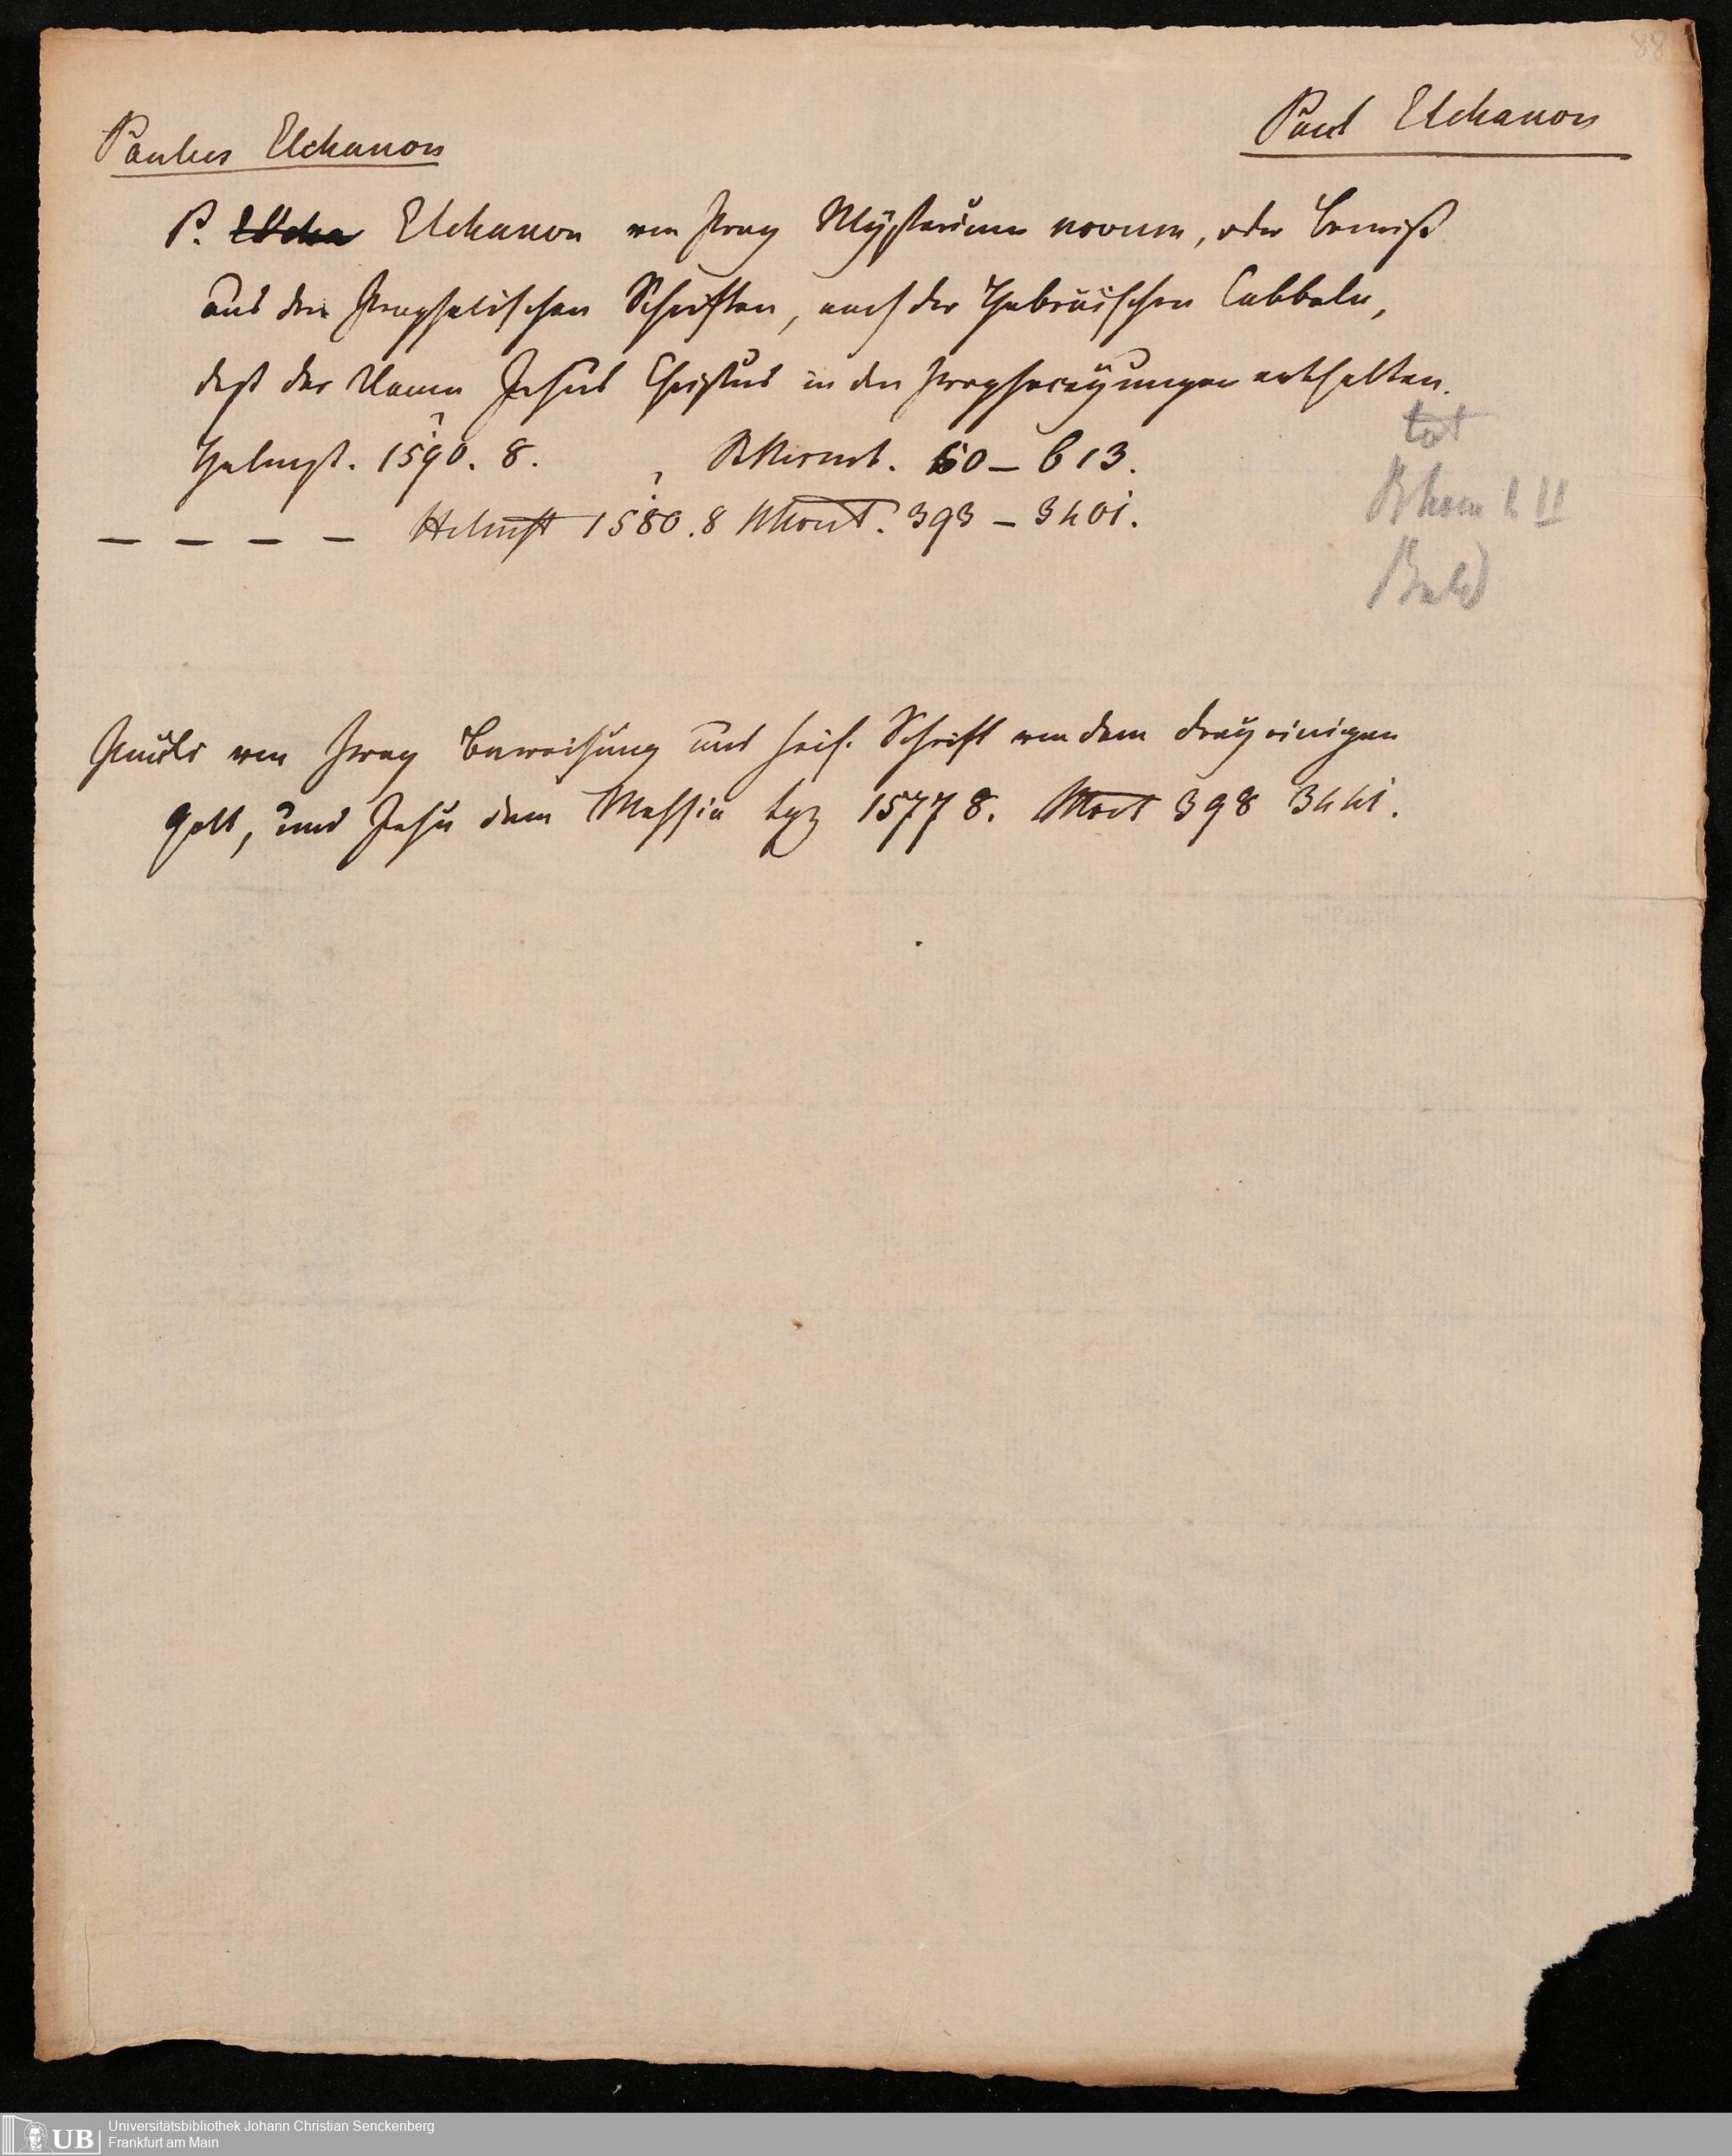 88
Paul Elchanon
Paulus Elchanon
P. Elcha Elchanon von Prag Mysterium novum, oder Beweiß
aus den Prophetischen Schriften, nach der Hebräischen Cabbala,
daß der Name Jesus Christus in den Prophezeyungen enthalten.
Helmst. 1590. 8. 60 – 613.
– – – – Helmst 1580. 8 393 – 3401.
Pauls von Prag Beweisung aus heil. Schrift von dem dreyeinigen
Gott, und Jesu dem Messia Lpz 1577 8. 398 3441.
UB Universitätsbibliothek Johann Christian Senckenberg
Frankfurt am Main